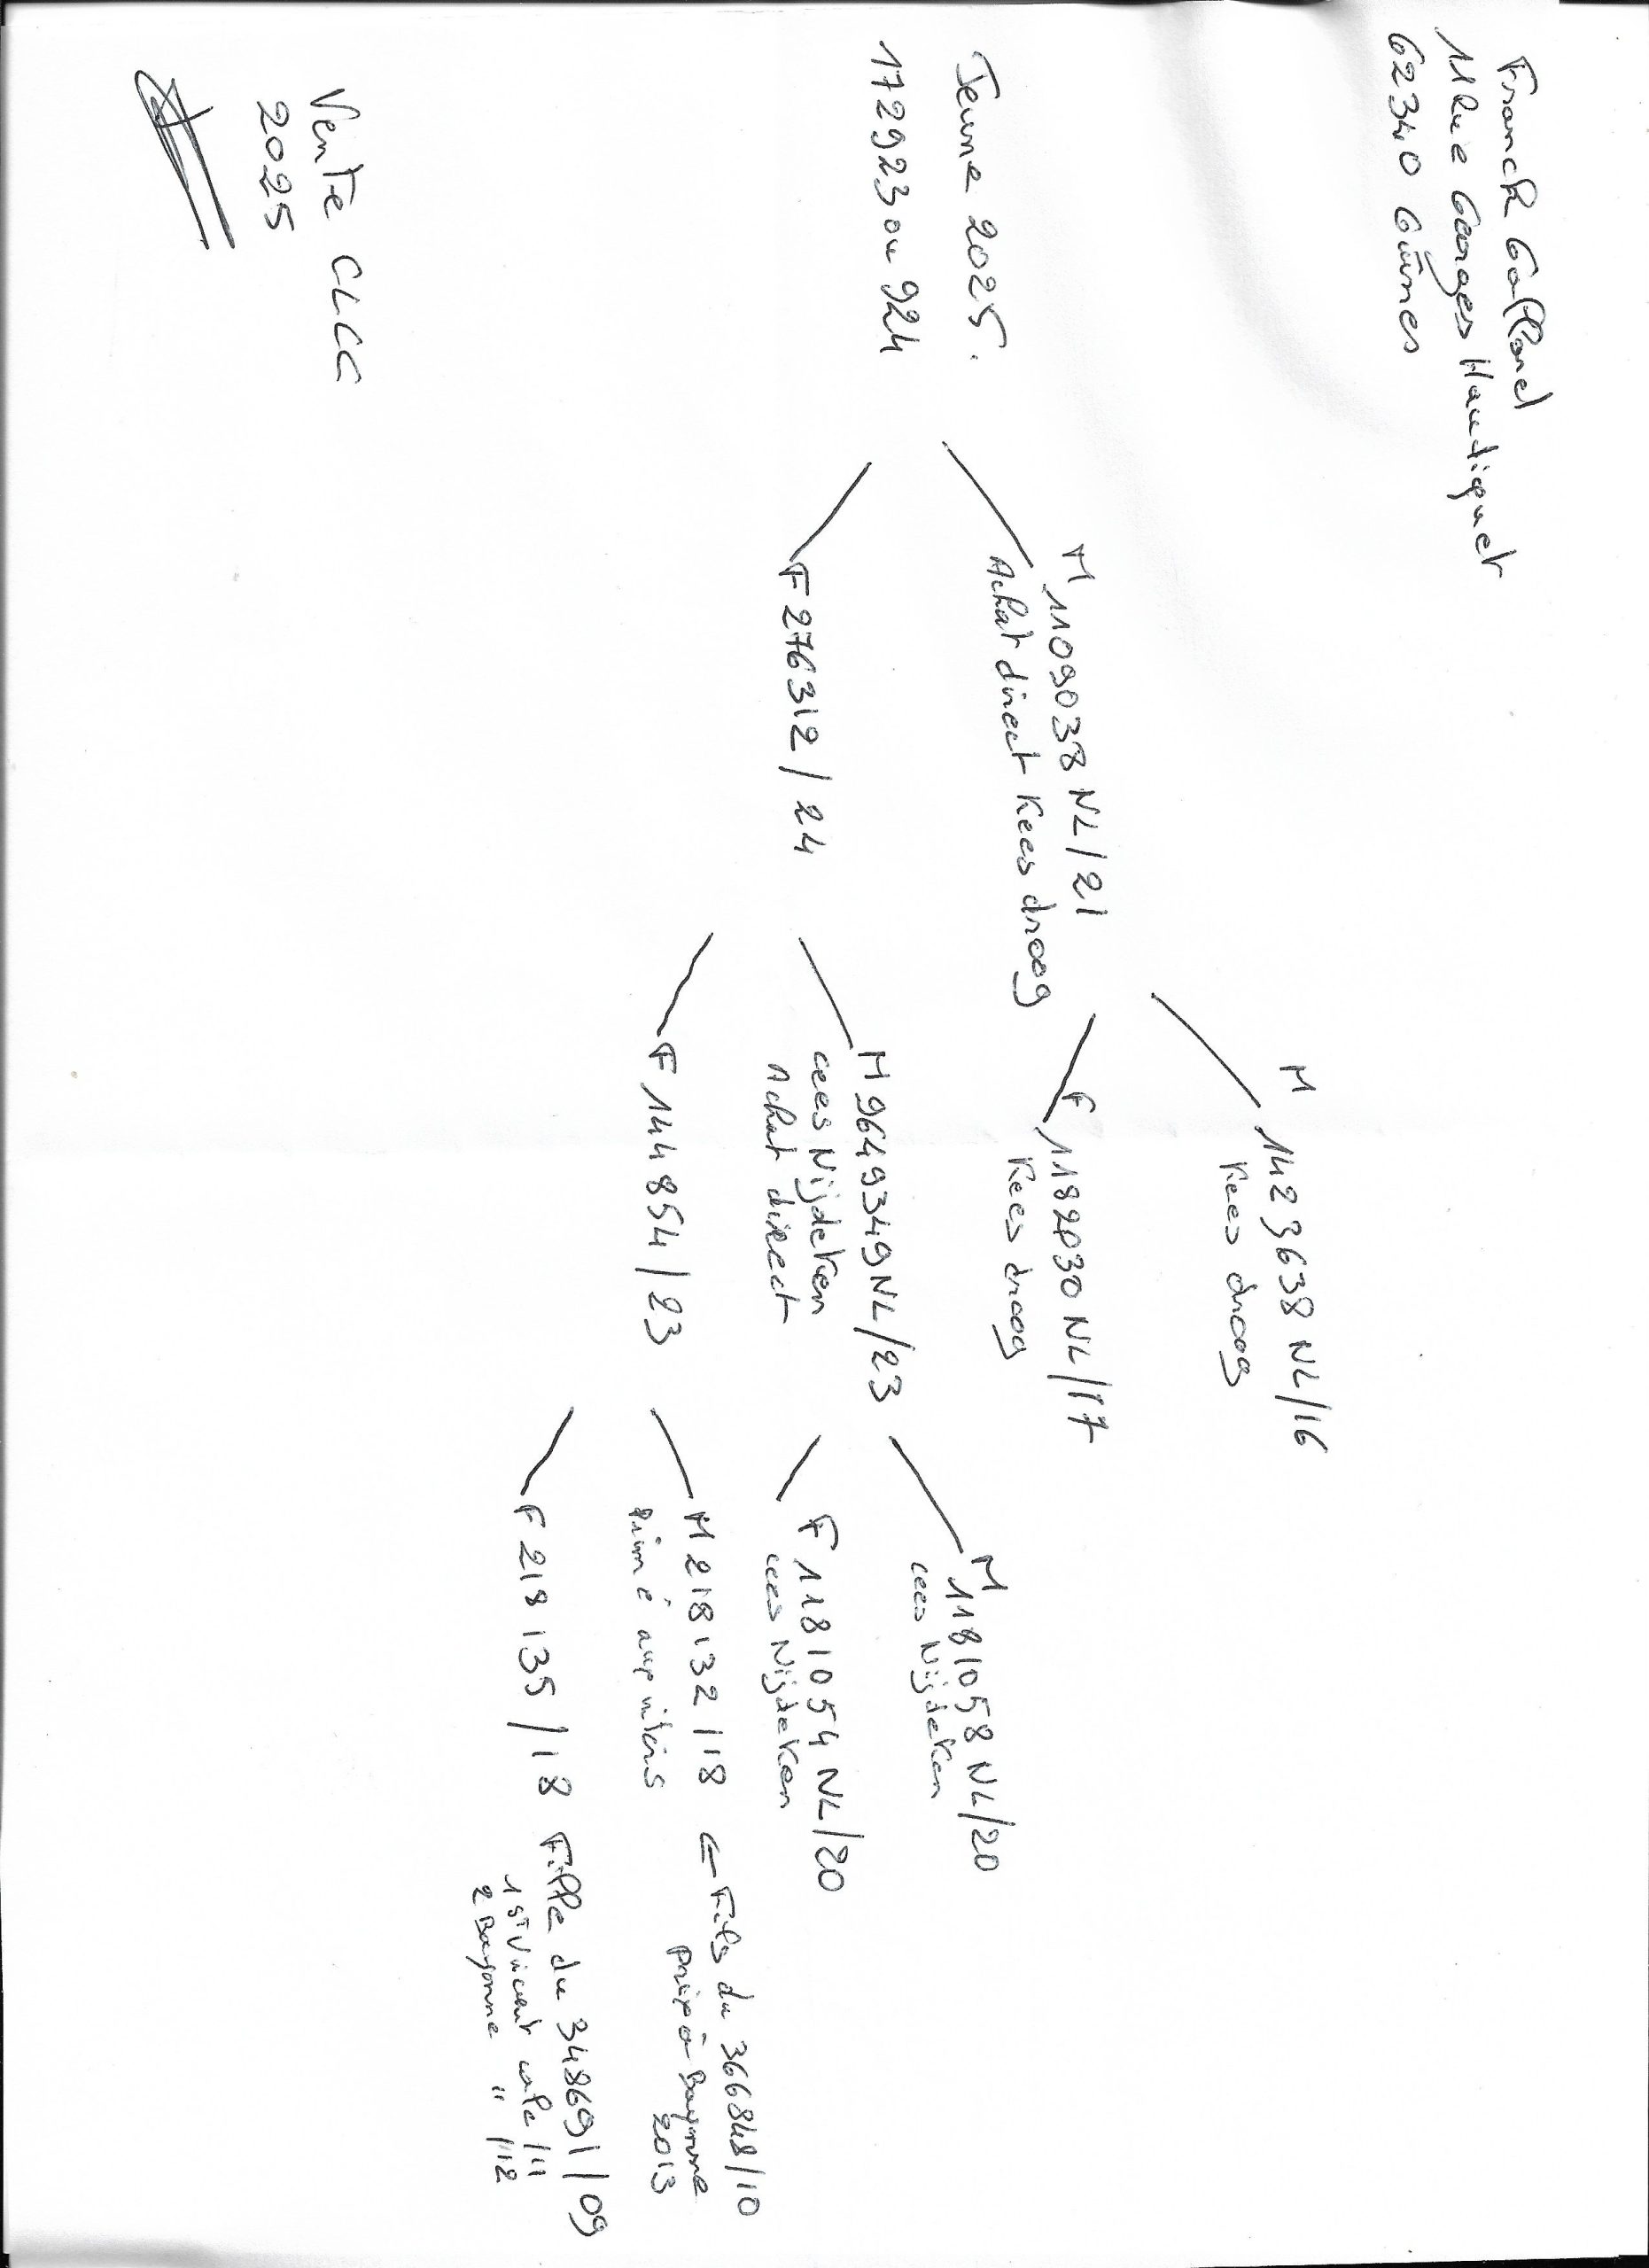 Franck Galland
11 Rue Georges Hautiquet
62340 Guînes
Jeune 2025.
172923 ou 924
M
1109038 NL/21
Achat direct Kees droog
M
1423638 NL/16
Kees droog
F
1182030 NL/17
Kees droog
F 276312/24
M 9649349 NL/23
Cees Nijdeken
Achat direct
M
1181058 NL/20
Cees Nijdeken
F 1181054 NL/20
Cees Nijdeken
F 144854/23
M 218132/18 ⇐ Fils du 366848/10
Primé
à Bayonne
2013
F 218135/18 Fille du 348691/09
1 St Vincent cale /11
2 Bayonne " /12
Vente CLCC
2025